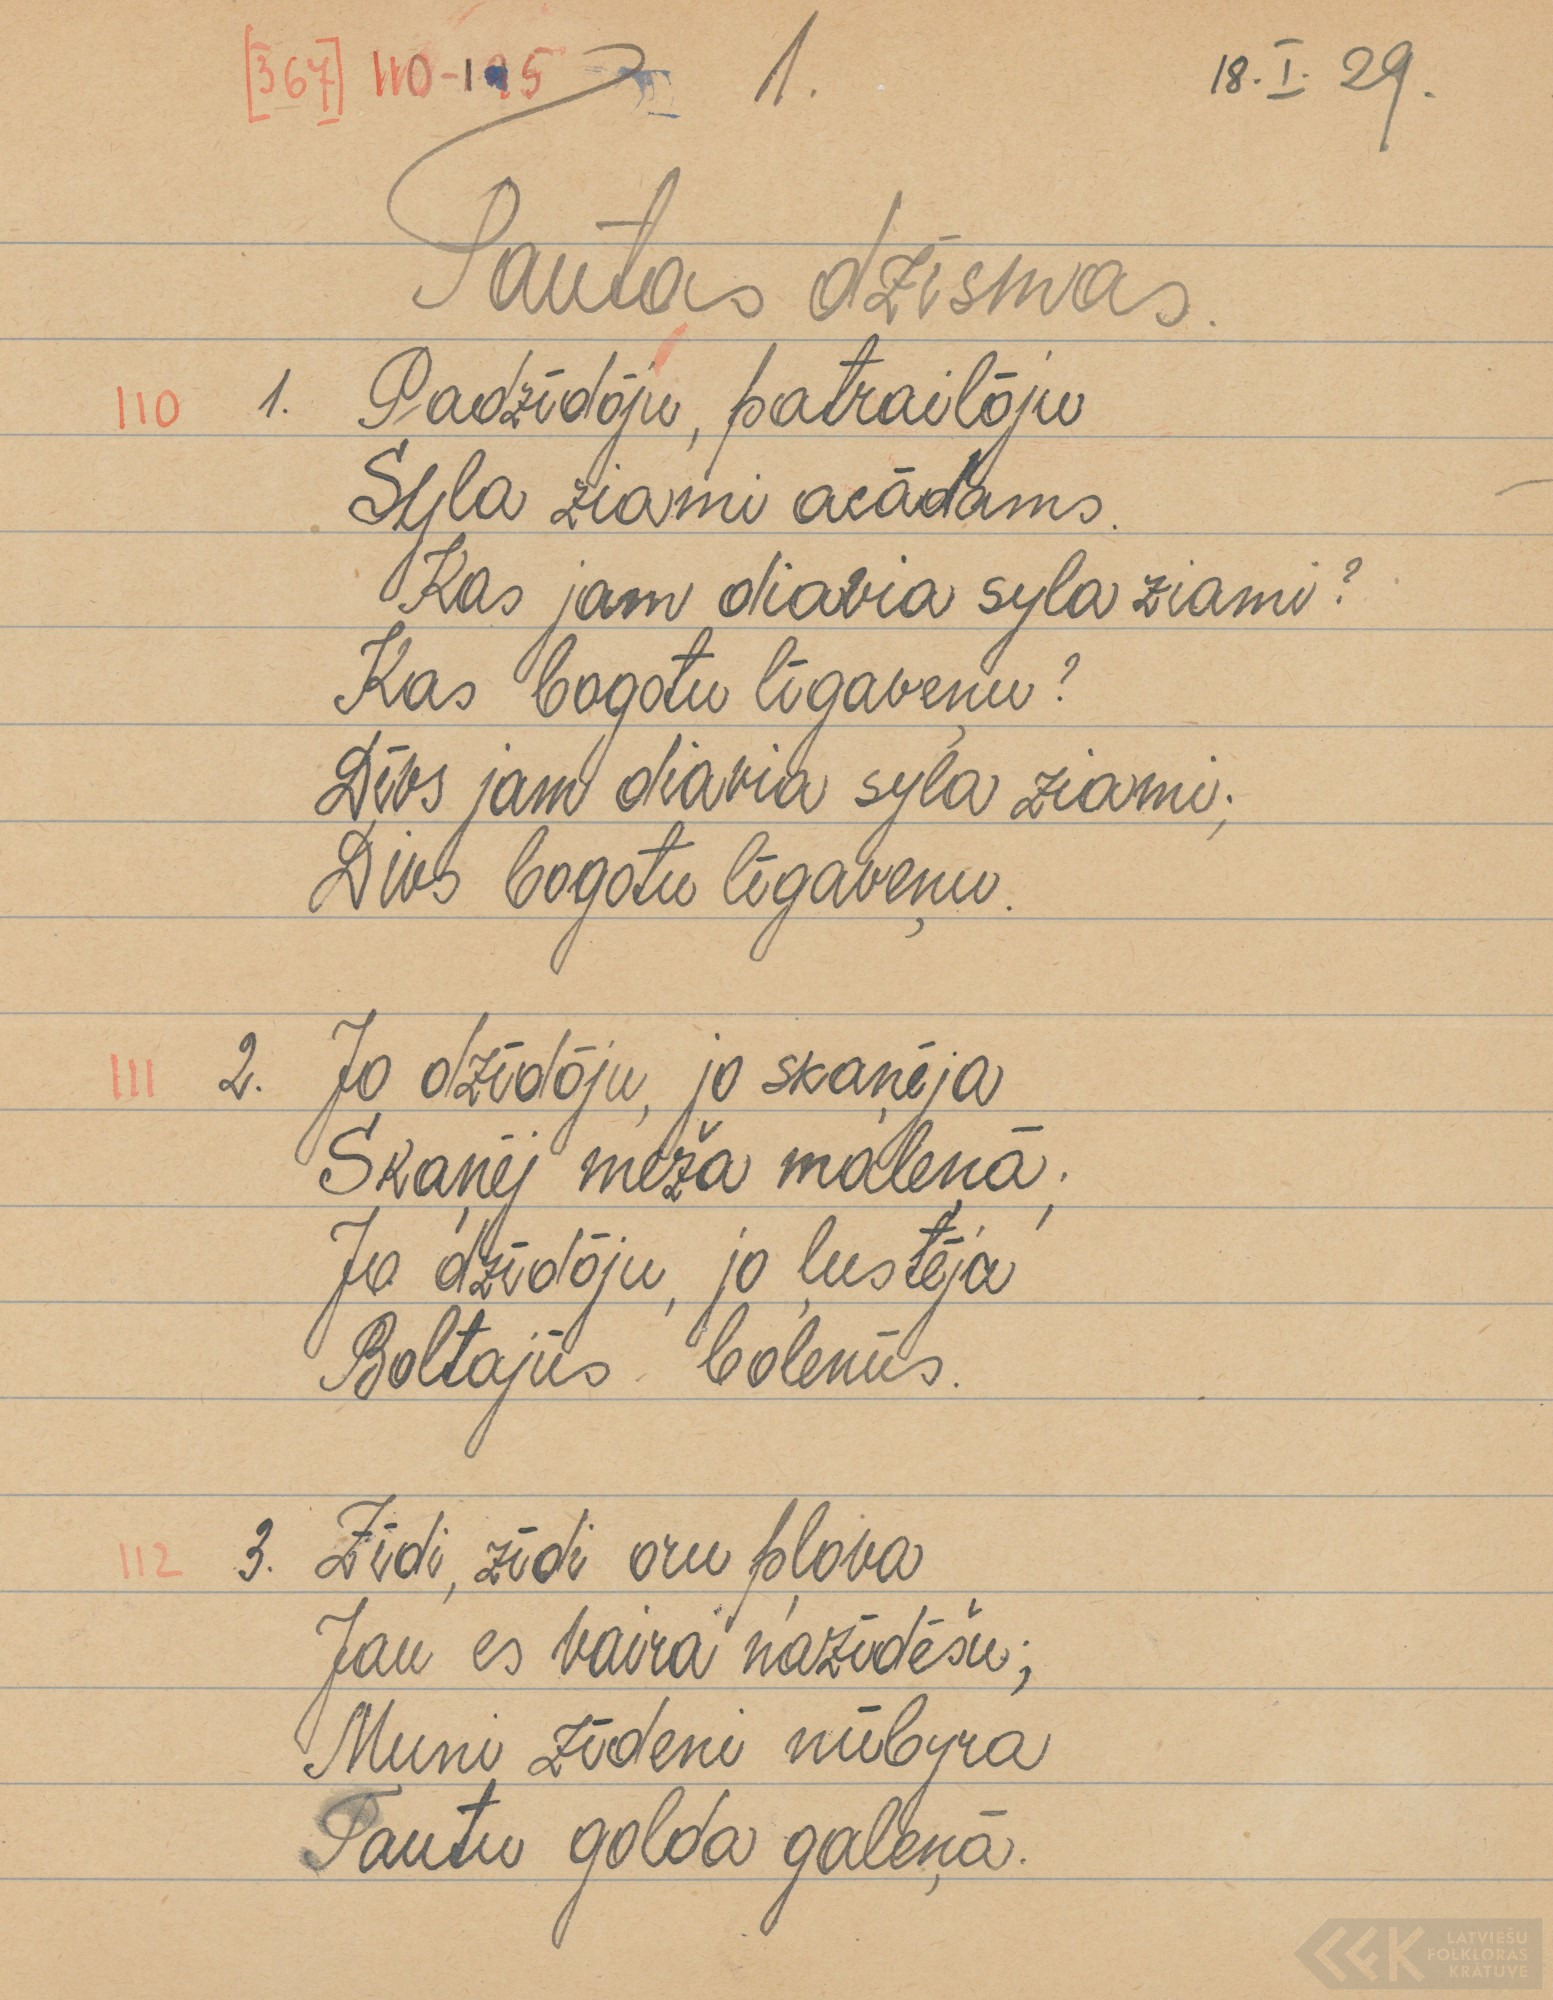 [367] 110-195 1. 18. I. 29.
Tautas dzīsmas.
110 1. Padzīdōju, patrailōju
Syla ziami acādams.
Kas jam diavia syla ziami?
Kas bogotu līgaveņu?
Dīvs jam diavia syla ziami;
Divs bogotu līgaveņu.
111 2. Jo dzīdōju, jo skaņēja
Skaņēj meža maleņā;
Jo dzīdōju, jo ļustēja
Boltajūs bolenūs.
112 3. Zīdi, zīdi oru pļova
Jau es vaira nazīdēšu;
Muni zīdeni nūbyra
Tautu golda galeņā.
LATVIEŠU
FOLKLORAS
KRĀTUVE